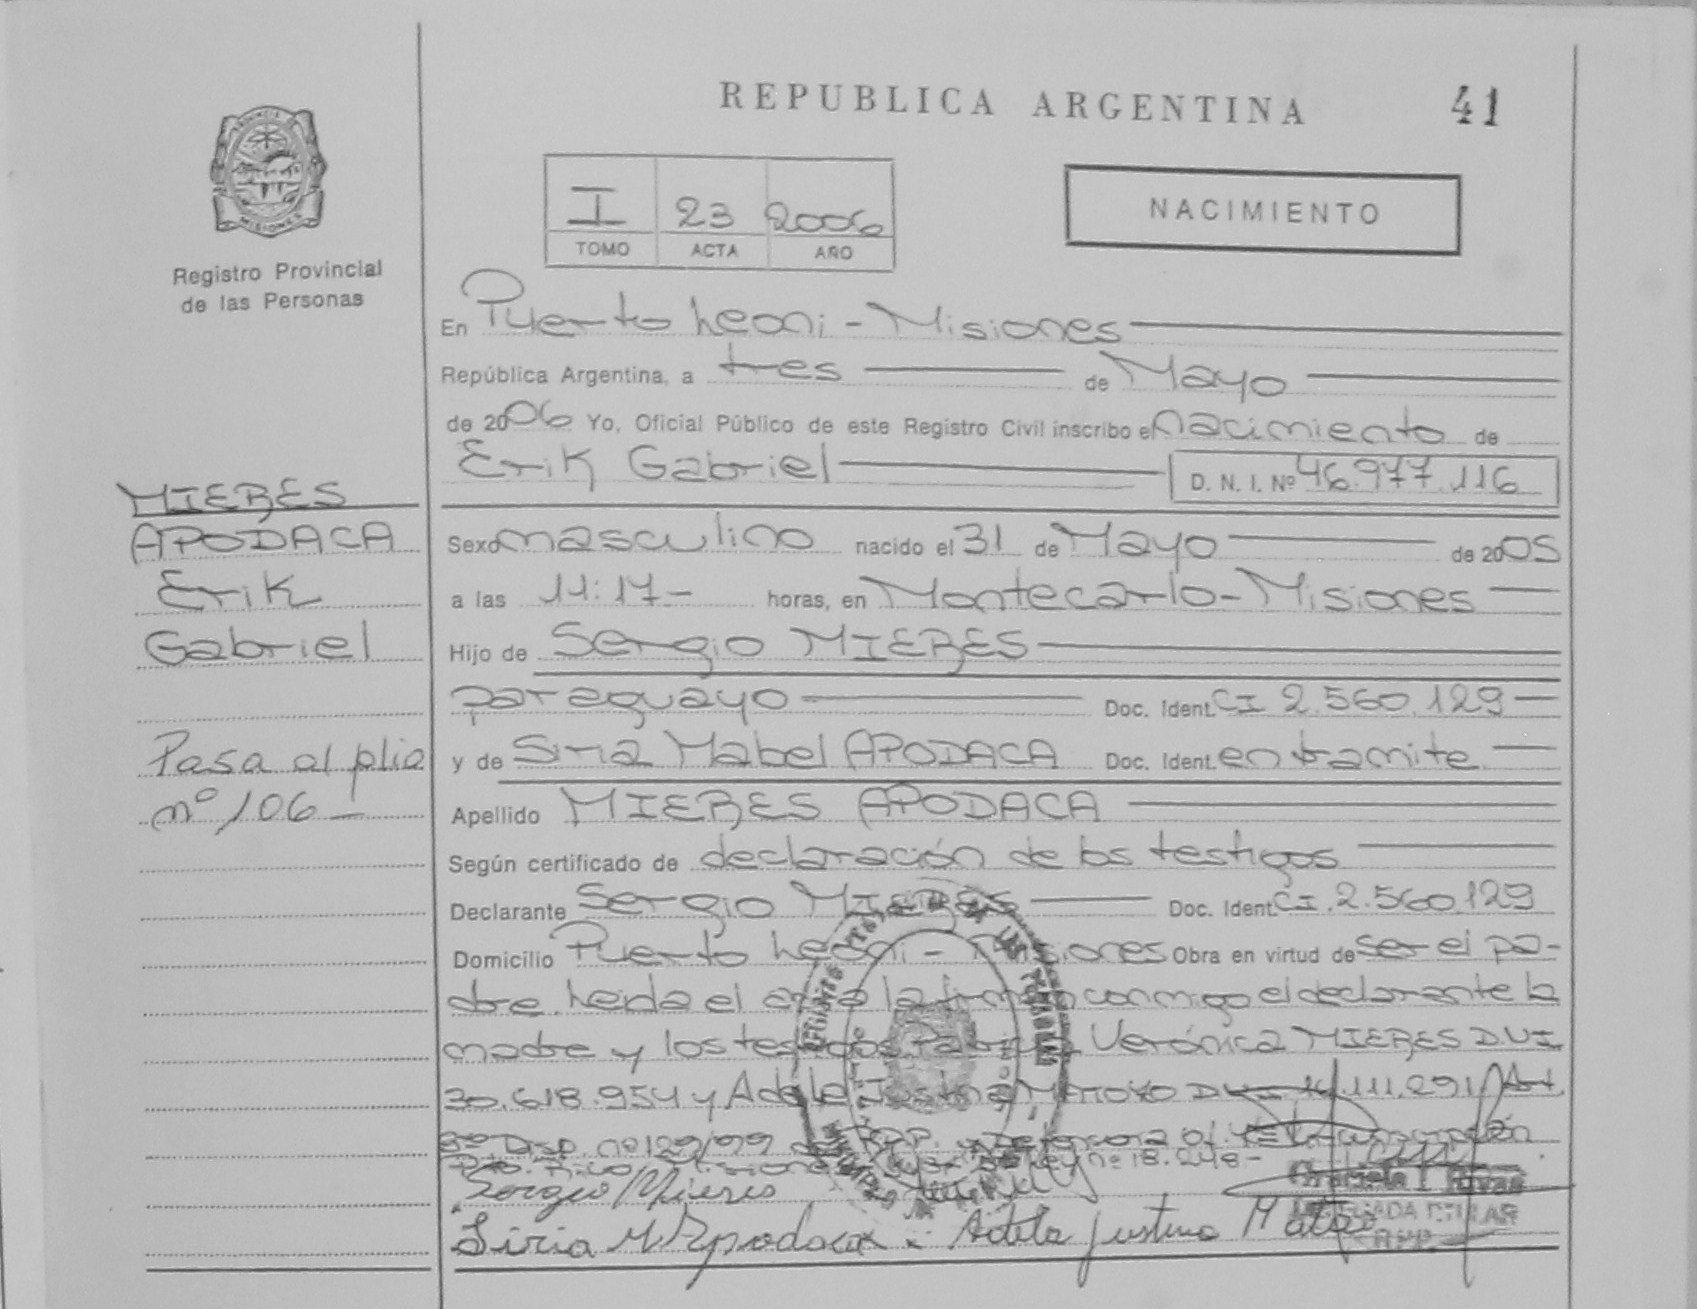 REPUBLICA ARGENTINA 41
PROVINCIA DE
MISIONES
Registro Provincial
de las Personas
I 23 2006
TOMO ACTA AÑO
NACIMIENTO
En Puerto Leoni - Misiones
República Argentina, a tres de Mayo
de 2006 Yo, Oficial Público de este Registro Civil inscribo el nacimiento de
Erik Gabriel D. N. I. Nº 46.977.116
MIERES
APODACA
Erik
Gabriel
Pasa al plio
nº 106
Sexo masculino nacido el 31 de Mayo de 2005
a las 11:17- horas, en Montecarlo - Misiones
Hijo de Sergio MIERES
paraguayo Doc. Ident. CI 2.560.129
y de Siria Mabel APODACA Doc. Ident. en tramite
Apellido MIERES APODACA
Según certificado de declaración de los testigos
Declarante Sergio MIERES Doc. Ident. CI. 2.560.129
Domicilio Puerto Leoni - Misiones Obra en virtud de ser el pa-
dre. Leida el acta la firman conmigo el declarante la
madre y los testigos Verónica MIERES DNI
30.618.954 y Adela Justina DNI 111.291 Art.
Disp. nº 129/99 RPP.
Pto. Rico Misiones Ley nº 18.248-
Sergio Mieres
Siria M Apodaca Adela Justina
TITULAR
RPP